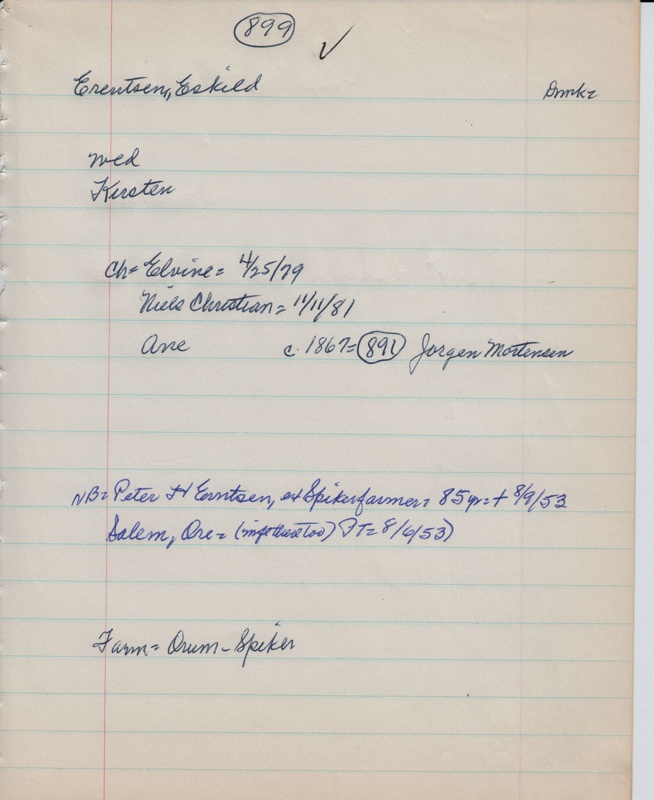 899 ✓
Erentsen, Eskild Dnmk=
med
Kirsten
Ch= Elvine= 4/25/79
Niels Christian= 11/11/81
Ane c. 1867= 891 Jorgen Mortensen
NB= Peter H Erntsen, ex Spiker farmer, 85 yr= + 8/9/53
Salem, Ore= ( too) = 8/6/53)
Farm= Orum - Spiker